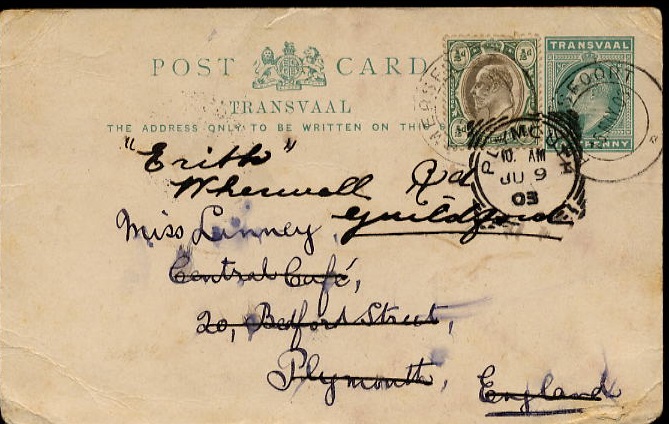 POST CARD
TRANSVAAL
THE ADDRESS ONLY TO BE WRITTEN ON THIS
½d ½d
½d
TRANSVAAL
PENNY
PLYMOUTH
10. AM
JU 9
03
"Erith"
Wherwell Rd
Guildford
Miss Linney,
Central Café,
20, Bedford Street,
Plymouth, England